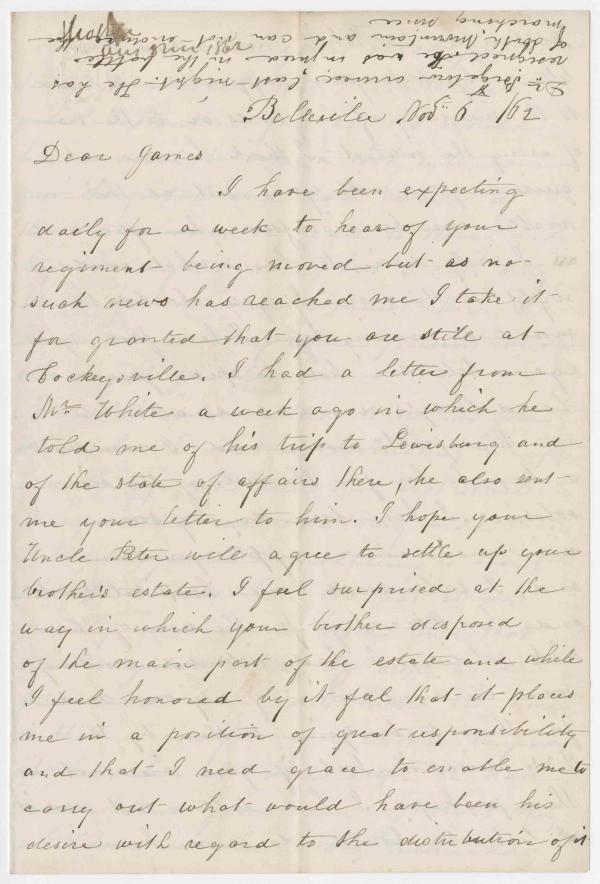 Dr. Bigelow arrived last night. He has
resigned. He was injured in the battle
of South Mountain and can not endure
marching since
1862
Belleville Nov. 6 /62
Dear James
I have been expecting
daily for a week to hear of your
regiment being moved but as no
such news has reached me I take it
for granted that you are still at
Cockeysville. I had a letter from
Mr. White a week ago in which he
told me of his trip to Lewisburg and
of the state of affairs there, he also sent
me your letter to him. I hope your
Uncle Peter will agree to settle up your
brother's estate. I feel surprised at the
way in which your brother disposed
of the main part of the estate and while
I feel honored by it feel that it places
me in a position of great responsibility
and that I need grace to enable me to
carry out what would have been his
desire with regard to the distribution of it